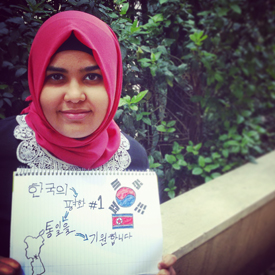 한국의
평화 #1
통일을
기원합니다